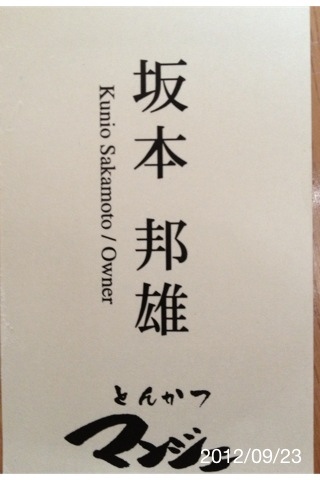 坂本 邦雄
Kunio Sakamoto / Owner
とんかつ
マンジェ
2012/09/23